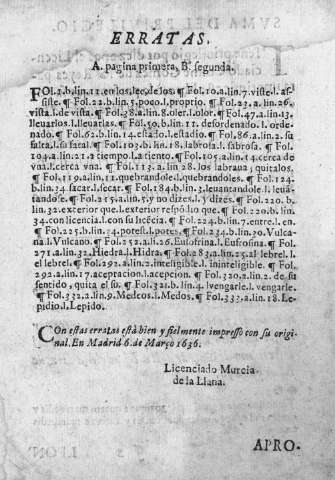 ERRATAS.
A. pagina primera, B. segunda.
FOl.2.b.lin.11.en los, lee de los. ¶ Fol.10.a.lin.7.viste.l.as-
siste. ¶ Fol.22.b.lin.5.poco.l.proprio. ¶ Fol.23.a.lin.26.
vista.l.de vista. ¶ Fol.38.a.lin.8.oler.l.olor. ¶ Fol.47.a.lin.13.
lleuarlos.l.lleuarlas. ¶ Fol.50.b.lin.11. desordenado.l.orde-
nado. ¶ Fol.62.b.lin.14.estado.l.estadio. ¶ Fol.86.a.lin.2.su
falta.l.su fatal. ¶ Fol.103.b.lin.18.labrosa.l.sabrosa. ¶ Fol.
104.a.lin.21.a tiempo.l.atiento. ¶ Fol.105.a.lin.14.cerca de
vna.l.cerca vna. ¶ Fol.113.a.lin.28.los labraua, quitalos.
¶ Fol.119.a.lin.11.quebrandole.l.quebrandoles. ¶ Fol.124.
b.lin.34.sacar.l.secar. ¶ Fol.184.b.lin.2.leuantandole.l.leuã-
tandose. ¶ Fol.215.a.lin.5.y no dizes.l.y dizes. ¶ Fol.220.b.
lin.32.exterior que.l.exterior respõdio que. ¶ Fol.220.b.lin.
34.con licencia.l.con su licẽcia. ¶ Fol.224.b.lin.7.entre.l.en.
¶ Fol.225.b.lin.34.potest.l.potes. ¶ Fol.234.b.lin.30.Vulca-
na.l.Vulcano. ¶ Fol.252.a.lin.26.Eusofrina.l.Eufrosina. ¶ Fol.
271.a.lin.32.Hiedra.l.Hidra. ¶ Fol.283.a.lin.25.al lebrel.l.
el lebrel. ¶ Fol.292.a.lin.2.inteligible.l.ininteligible. ¶ Fol.
292.a.lin.17.aceptacion.l.acepcion. ¶ Fol.320.a.lin.2.de su
sentido, quita el su. ¶ Fol.321.b.lin.4.lvengarle.l.vengarle.
¶ Fol.332.a.lin.9.Medeos.l.Medos. ¶ Fol.333.a.lin.18.Le-
pidio.l.Lepido.
COn estas erratas està bien y fielmente impresso con su origi-
nal. En Madrid 6. de Março 1636.
Licenciado Murcia
de la Llana.
APRO-